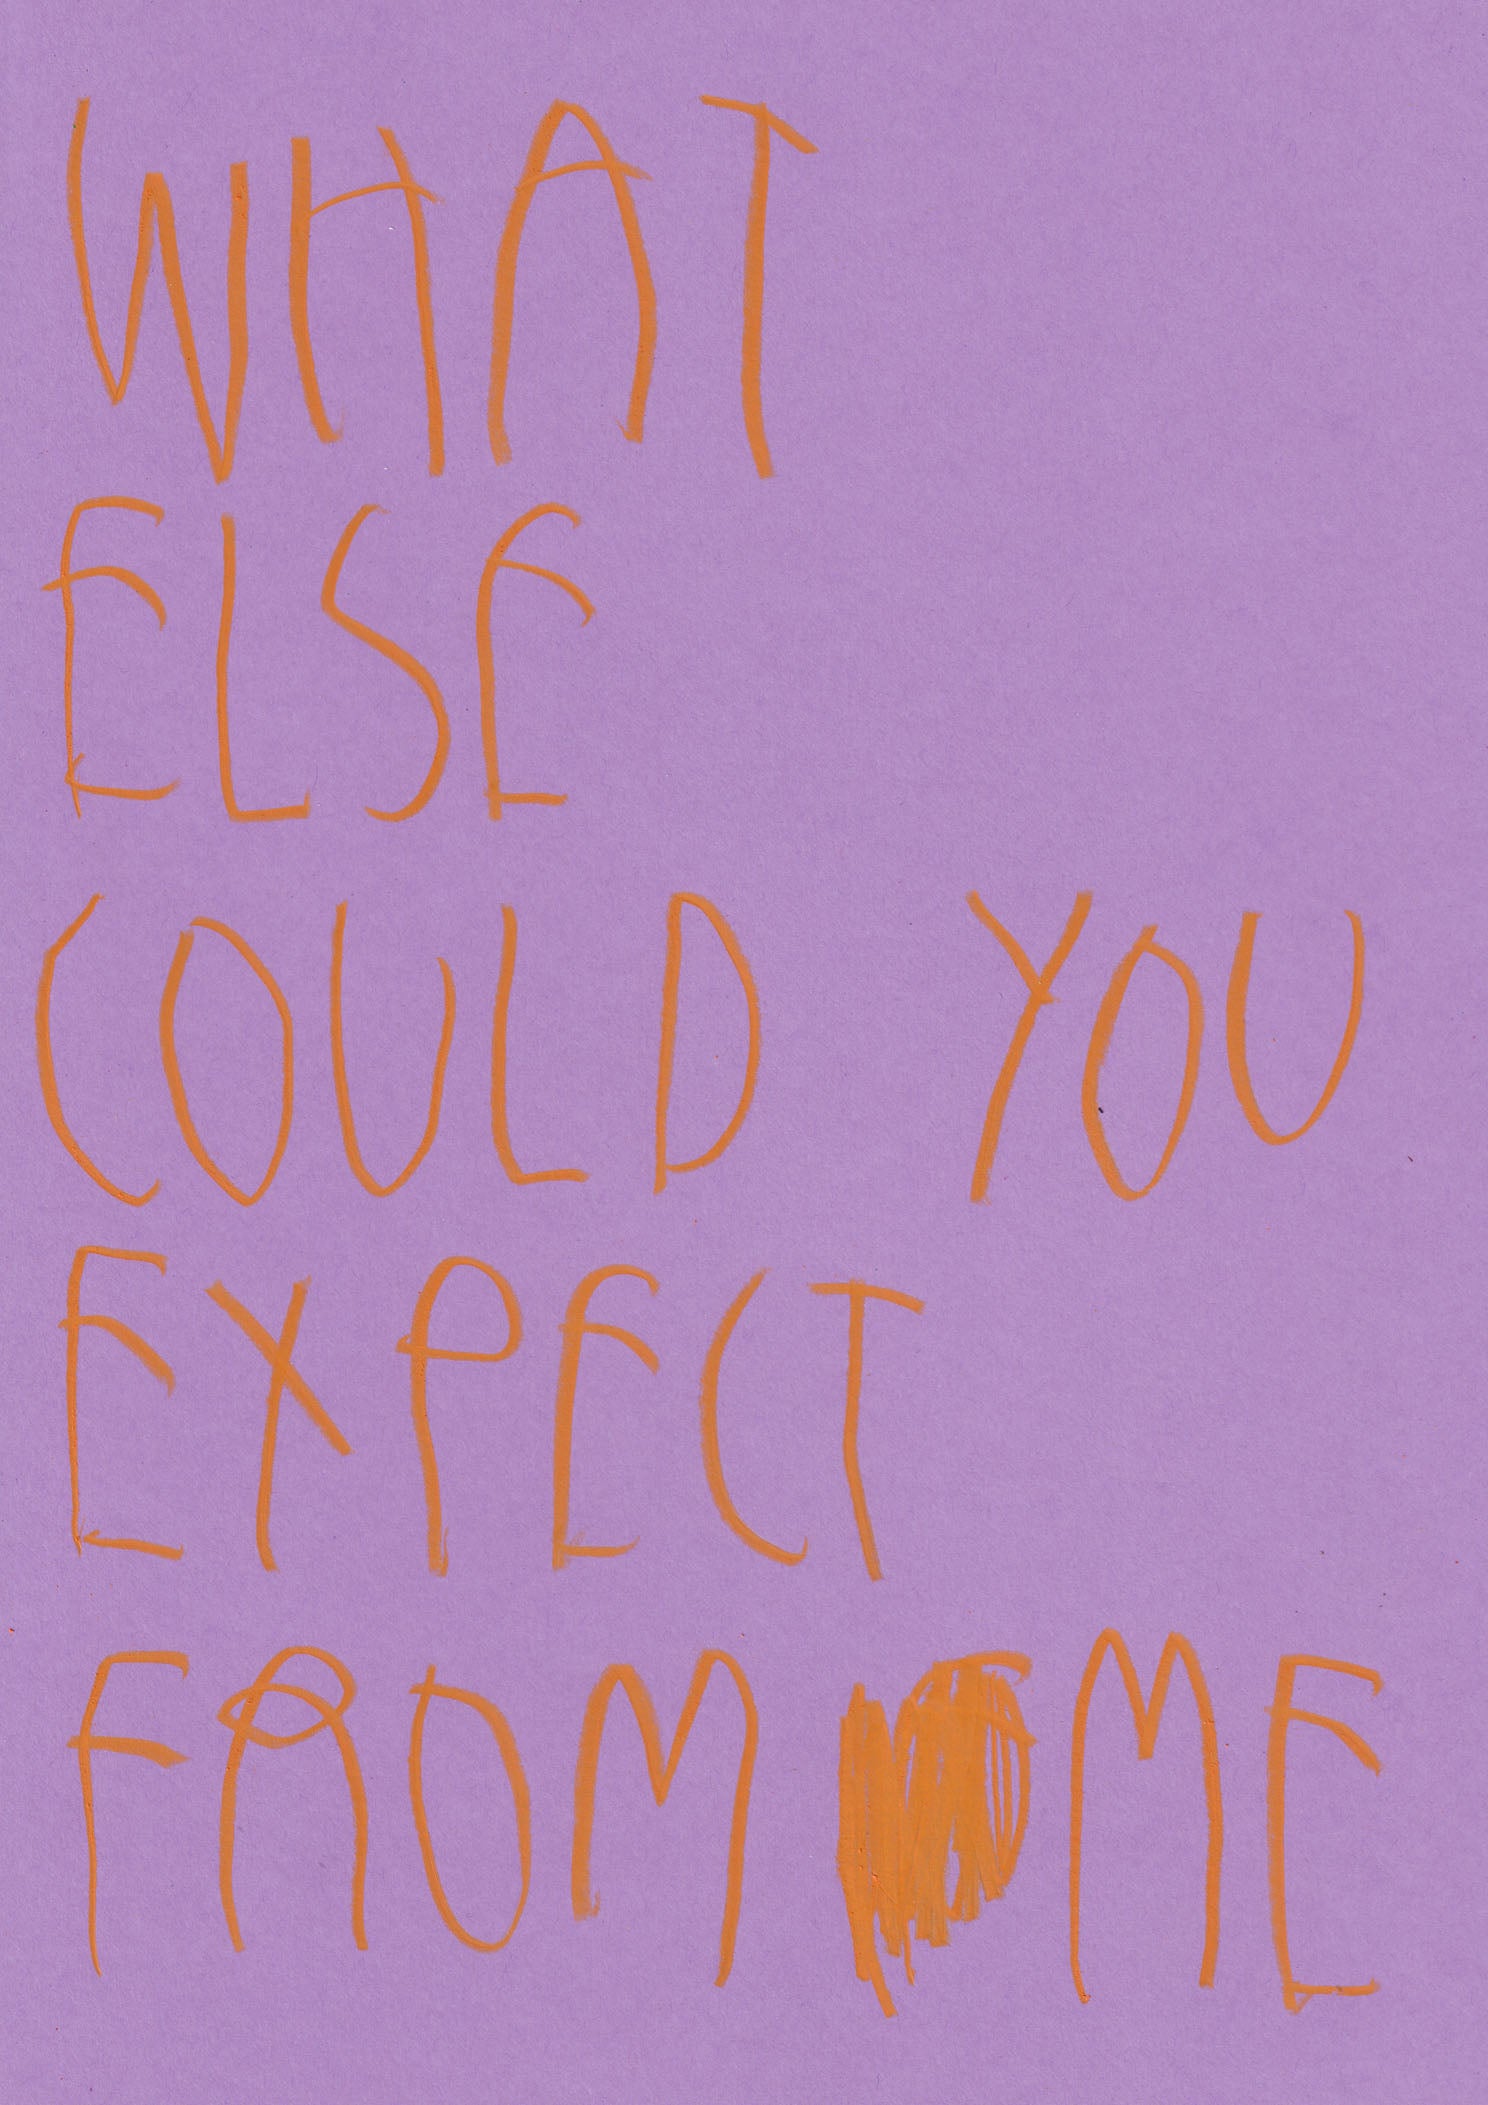 WHAT
ELSE
COULD YOU
EXPECT
FROM ME